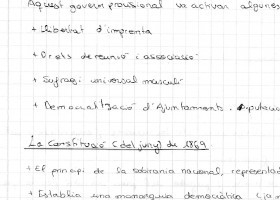 Aquest govern provisional va activar algunes
+ Llibertat d'imprenta
+ Drets de reunió i associació
+ Sufrag. universal masculí
+ Democratització d'Ajuntaments.
La Constitució (del juny) de 1869
+ El principi de la sobirania nacional, representad
+ Establia una monarquia democràtica (ja